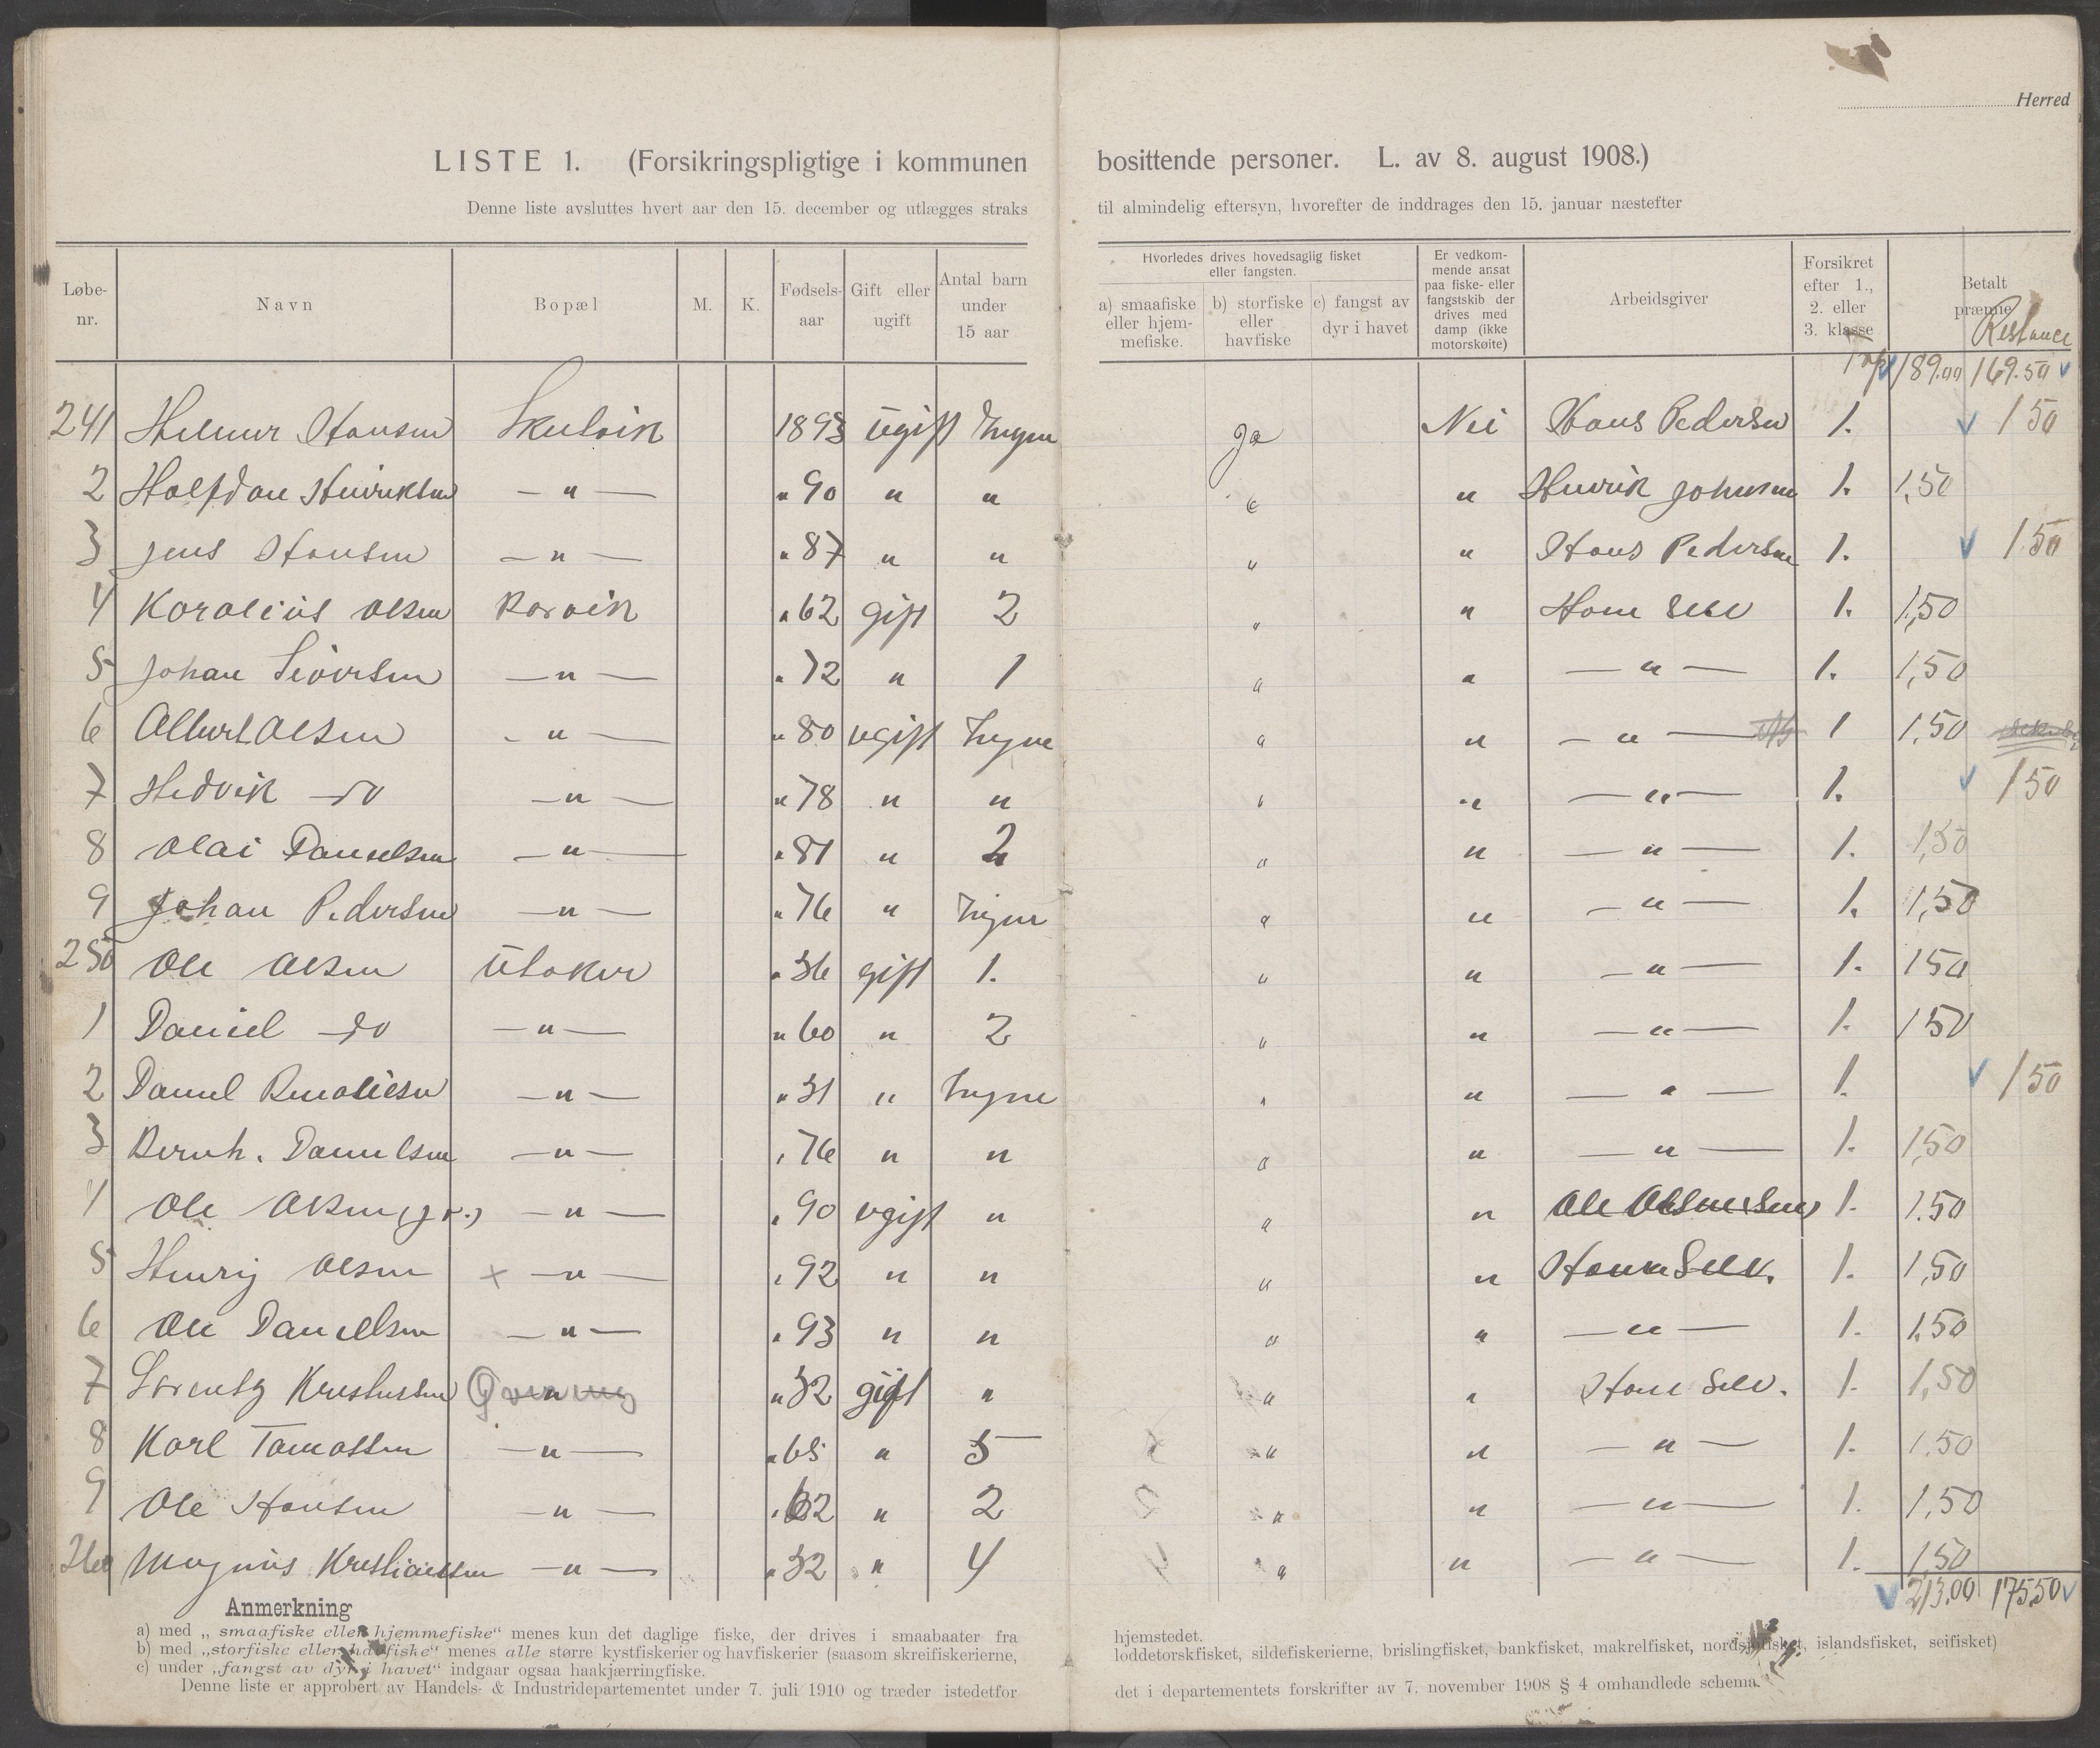 Herred
LISTE 1. (Forsikringspligtige i kommunen bosittende personer. L. av 8. august 1908.)
Denne liste avsluttes hvert aar den 15. december og utlægges straks til almindelig eftersyn, hvorefter de inddrages den 15. januar næstefter
Løbe-nr. Navn Bopæl M. K. Fødsels-aar Gift eller ugift Antal barn under 15 aar Hvorledes drives hovedsaglig fisket eller fangsten. a) smaafiske eller hjem-mefiske. b) storfiske eller havfiske c) fangst av dyr i havet Er vedkom-mende ansat paa fiske- eller fangstskib der drives med damp (ikke motorskøite) Arbeidsgiver Forsikret efter 1., 2. eller 3. klasse Betalt præmie Restance
189.00 169.50
241 Hansen 1893 ugift Ingen Ja Nei Hans Pedersen 1. 1 50
2 Halfdan Henriksen — " — " 90 " " " " Henrik Johnsen 1. 1,50
3 Jens Hansen — " — " 87 " " " " Hans Pedersen 1. 1.50
4 Karolius Olsen Korvik " 62 gift 2 " " Ham selv 1. 1,50
5 Johan Siversen — " — " 72 " 1 " " — " — 1. 1,50
6 Albert Olsen — " — " 80 ugift Ingen " " — " — 1 1,50
7 Hedvik do — " — " 78 " " " " — " — 1. 1 50
8 Olai Danielsen — " — " 81 " 2 " " — " — 1. 1,50
9 Johan Pedersen — " — " 76 " Ingen " " — " — 1. 1,50
250 Ole Olsen " 36 gift 1. " " — " — 1. 1 50
1 Daniel do — " — " 60 " 2 " " — " — 1. 1 50
2 Daniel — " — " 31 " Ingen " " — " — 1. 1 50
3 Bernh. Danielsen — " — " 76 " " " " — " — 1. 1,50
4 Ole Olsen (jr.) — " — " 90 ugift " " " Ole 1. 1.50
5 Henrig Olsen × — " — " 92 " " " " Ham Selv. 1. 1,50
6 Ole Danielsen — " — " 93 " " " " — " — 1. 1.50
7 Lorentz Kristensen — " — " 32 gift " " " Ham Selv. 1. 1,50
8 Karl Tomassen — " — " 65 " 5 " " — " — 1. 1.50
9 Ole Hansen — " — " 62 " 2 " " — " — 1. 1,50
260 Magnus Kristiansen — " — " 32 " 4 " " — " — 1. 1,50
213.00 175.50
Anmerkning
a) med „smaafiske eller hjemmefiske“ menes kun det daglige fiske, der drives i smaabaater fra hjemstedet.
b) med „storfiske eller havfiske“ menes alle større kystfiskerier og havfiskerier (saasom skreifiskerierne, loddetorskfisket, sildefiskerierne, brislingfisket, bankfisket, makrelfisket, nordsjøfisket, islandsfisket, seifisket)
c) under „fangst av dyr i havet“ indgaar ogsaa haakjærringfiske.
Denne liste er approbert av Handels- & Industridepartementet under 7. juli 1910 og træder istedetfor det i departementets forskrifter av 7. november 1908 § 4 omhandlede schema.